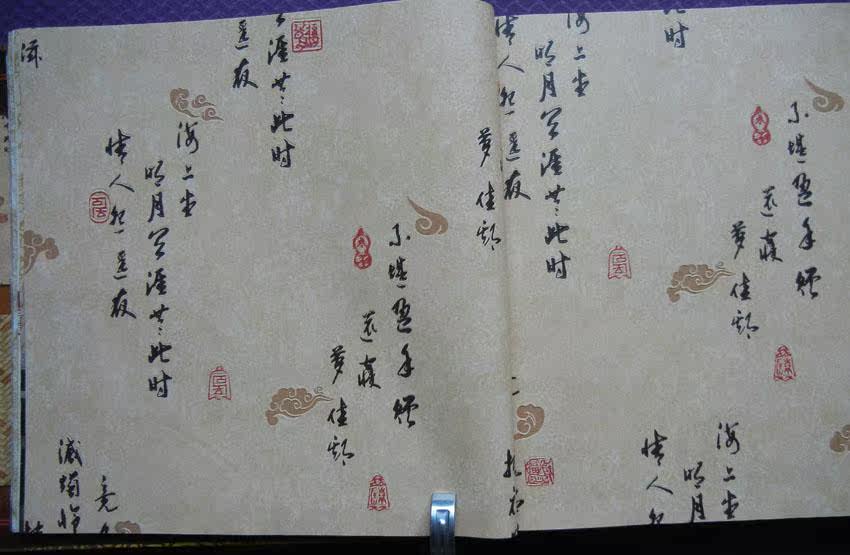 天涯共此时
遥夜
滋
海上生
明月天涯共此时
情人怨遥夜
梦佳期
不堪盈手赠
还寝
梦佳期
竟夕
滅烛怜
此时
海上生
明月天涯共此时
情人怨遥夜
不堪盈手赠
还寝
梦佳期
海上生
明月
情人怨